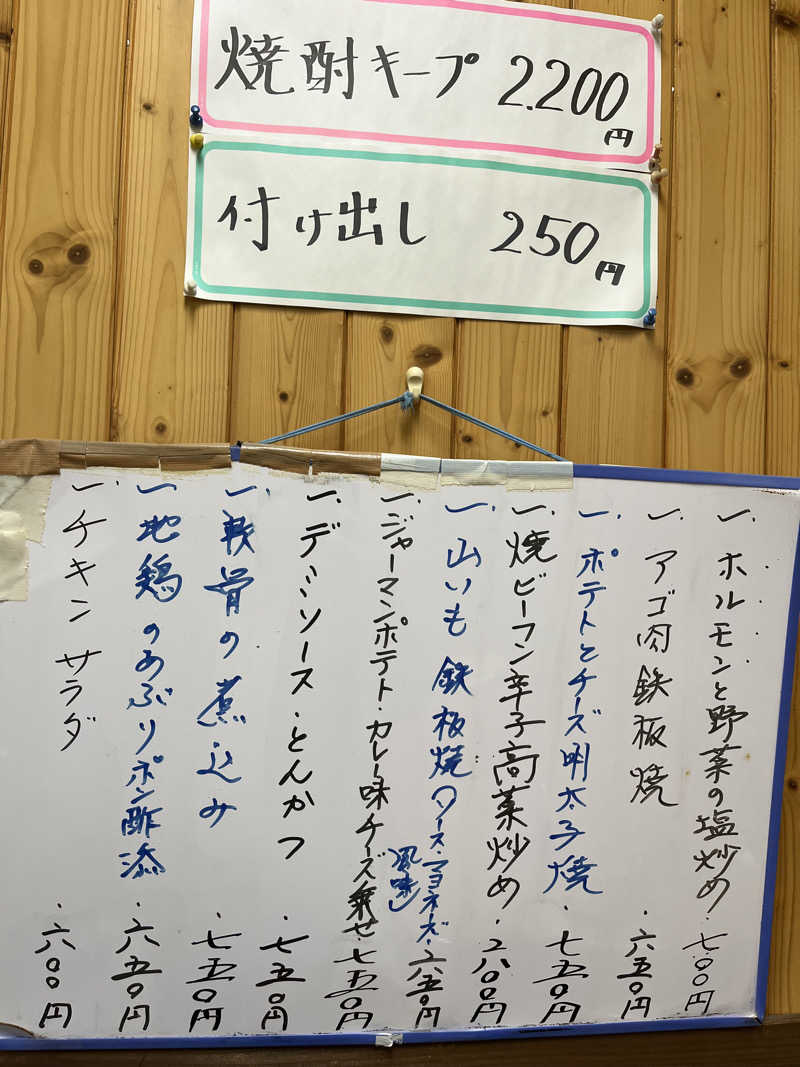 焼酎キープ 2.200円
付け出し 250円
一、ホルモンと野菜の塩炒め・七〇〇円
一、アゴ肉鉄板焼・六五〇円
一、ポテトとチーズ明太子焼・七五〇円
一、焼ビーフン辛子高菜炒め・六〇〇円
一、山いも鉄板焼(ソース・マヨネーズ・風味)六五〇円
一、ジャーマンポテト・カレー味チーズ乗せ・七五〇円
一、デミソース・とんかつ・七五〇円
一、軟骨の煮込み・七五〇円
一、地鶏のあぶりポン酢添・六五〇円
一、チキンサラダ・六〇〇円